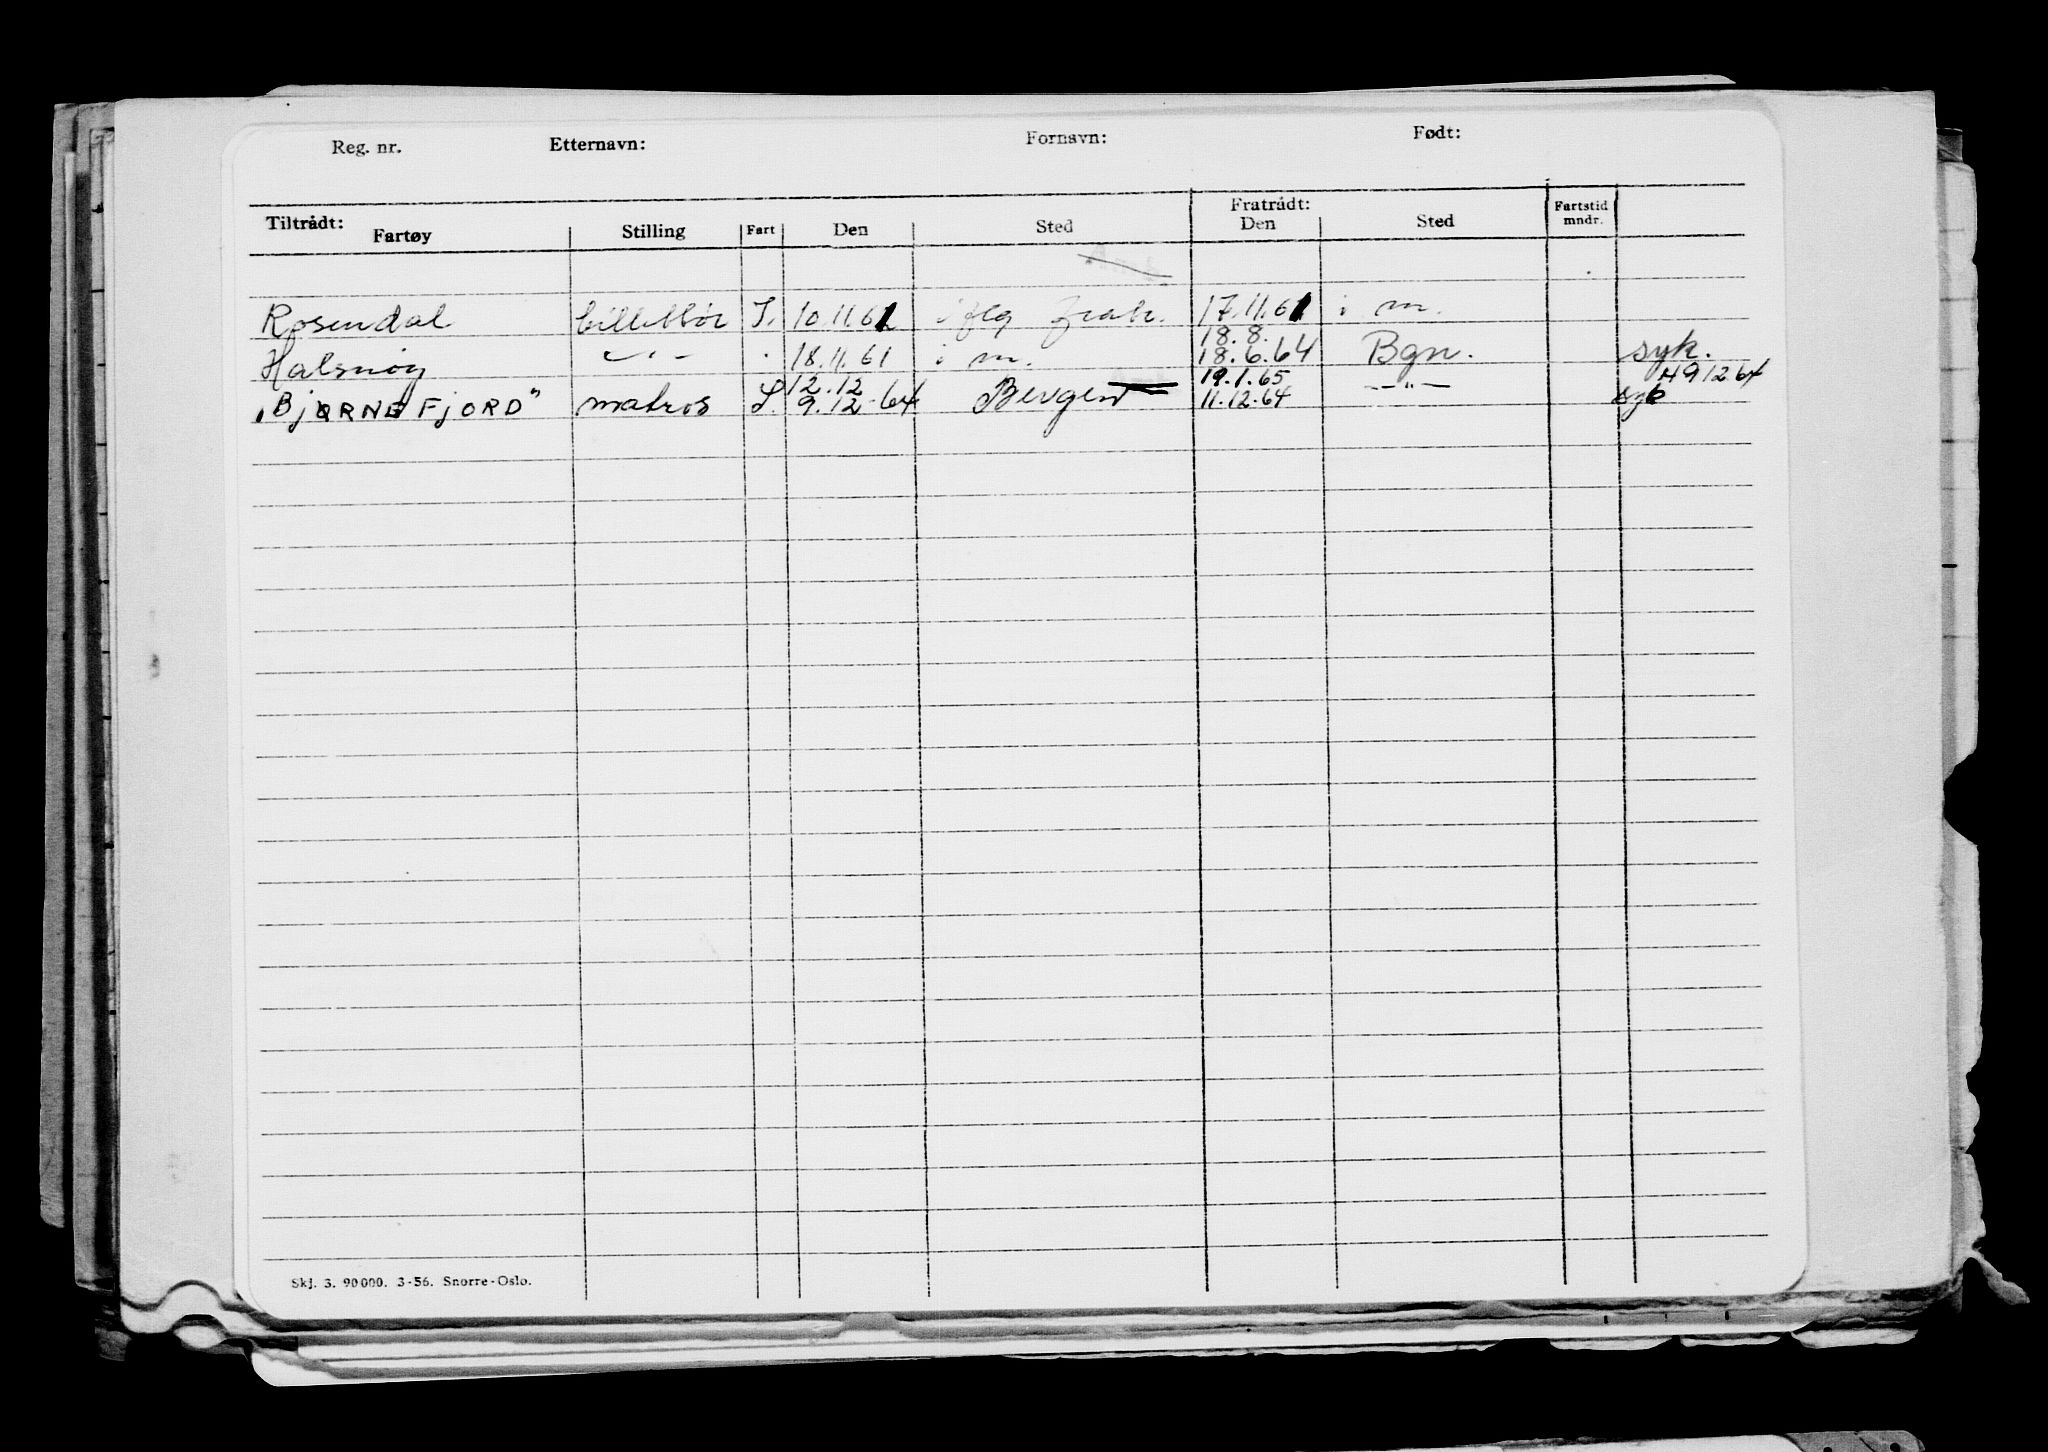 Reg. nr. Etternavn: Fornavn: Født:
Tiltrådt: Fratrådt:
Fartøy Stilling Fart Den Sted Den Sted Fartstid mndr.
Rosendal billettør I. 10.11.61 i flg 17.11.61 i m.
18.8.
Halsnøy -"- 18.11.61 i m. 18.6.64 Bgn. syk.
12.12 19.1.65 -"- 49 12 64
"BJØRNEFJORD" matros I. 9.12.64 Bergen 11.12.64 syk
Skj. 3. 90 000. 3-56. Snorre-Oslo.